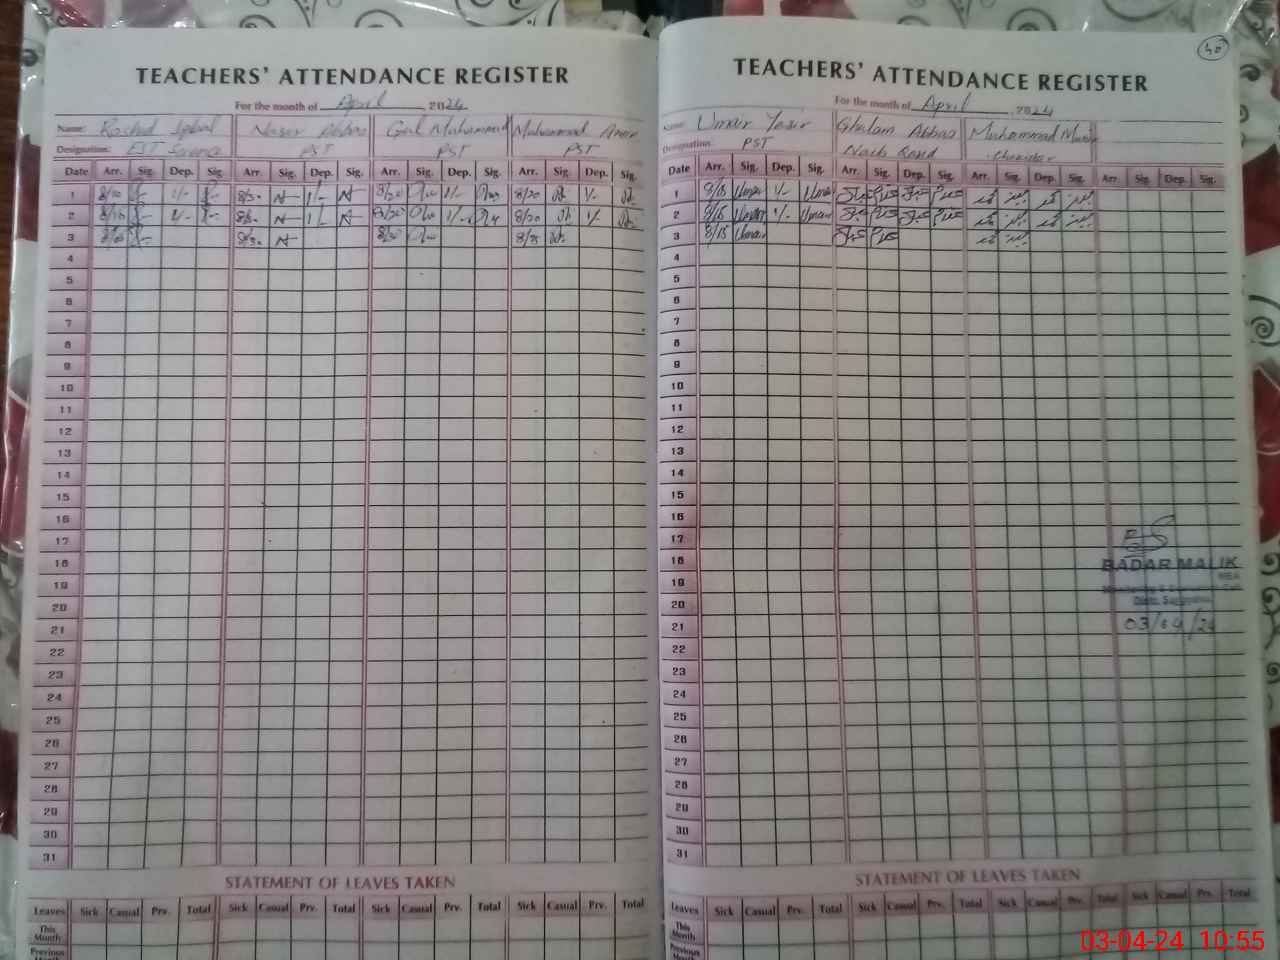 40
TEACHERS' ATTENDANCE REGISTER
For the month of April, 2024
Name: Rashid Iqbal Naser Abbas Gul Muhammad Muhammad Amir
Designation: EST Science PST PST PST
Date Arr. Sig. Dep. Sig. Arr. Sig. Dep. Sig. Arr. Sig. Dep. Sig. Arr. Sig. Dep. Sig.
1 8/20 1/- 8/30 1/- 8/20 1/- 8/20 1/-
2 8/15 1/- 8/30 1/- 8/20 1/- 8/20 1/-
3 8/30 8/20 8/25
4
5
6
7
8
9
10
11
12
13
14
15
16
17
18
19
20
21
22
23
24
25
26
27
28
29
30
31
STATEMENT OF LEAVES TAKEN
Leaves Sick Casual Prv. Total Sick Casual Prv. Total Sick Casual Prv. Total Sick Casual Prv. Total
This Month
Previous Month
TEACHERS' ATTENDANCE REGISTER
For the month of April, 2024
Name: Umair Yasir Ghulam Abbas Muhammad
Designation: PST Naib Qasid Chokidar
Date Arr. Sig. Dep. Sig. Arr. Sig. Dep. Sig. Arr. Sig. Dep. Sig. Arr. Sig. Dep. Sig.
1 8/15 Umair 1/- Umair
2 8/15 Umair 1/- Umair
3 8/15 Umair
4
5
6
7
8
9
10
11
12
13
14
15
16
17
18
19
20
21
22
23
24
25
26
27
28
29
30
31
BADAR MALIK
MEA
03/04/24
STATEMENT OF LEAVES TAKEN
Leaves Sick Casual Prv. Total Sick Casual Prv. Total Sick Casual Prv. Total Sick Casual Prv. Total
This Month
Previous Month
03-04-24 10:55